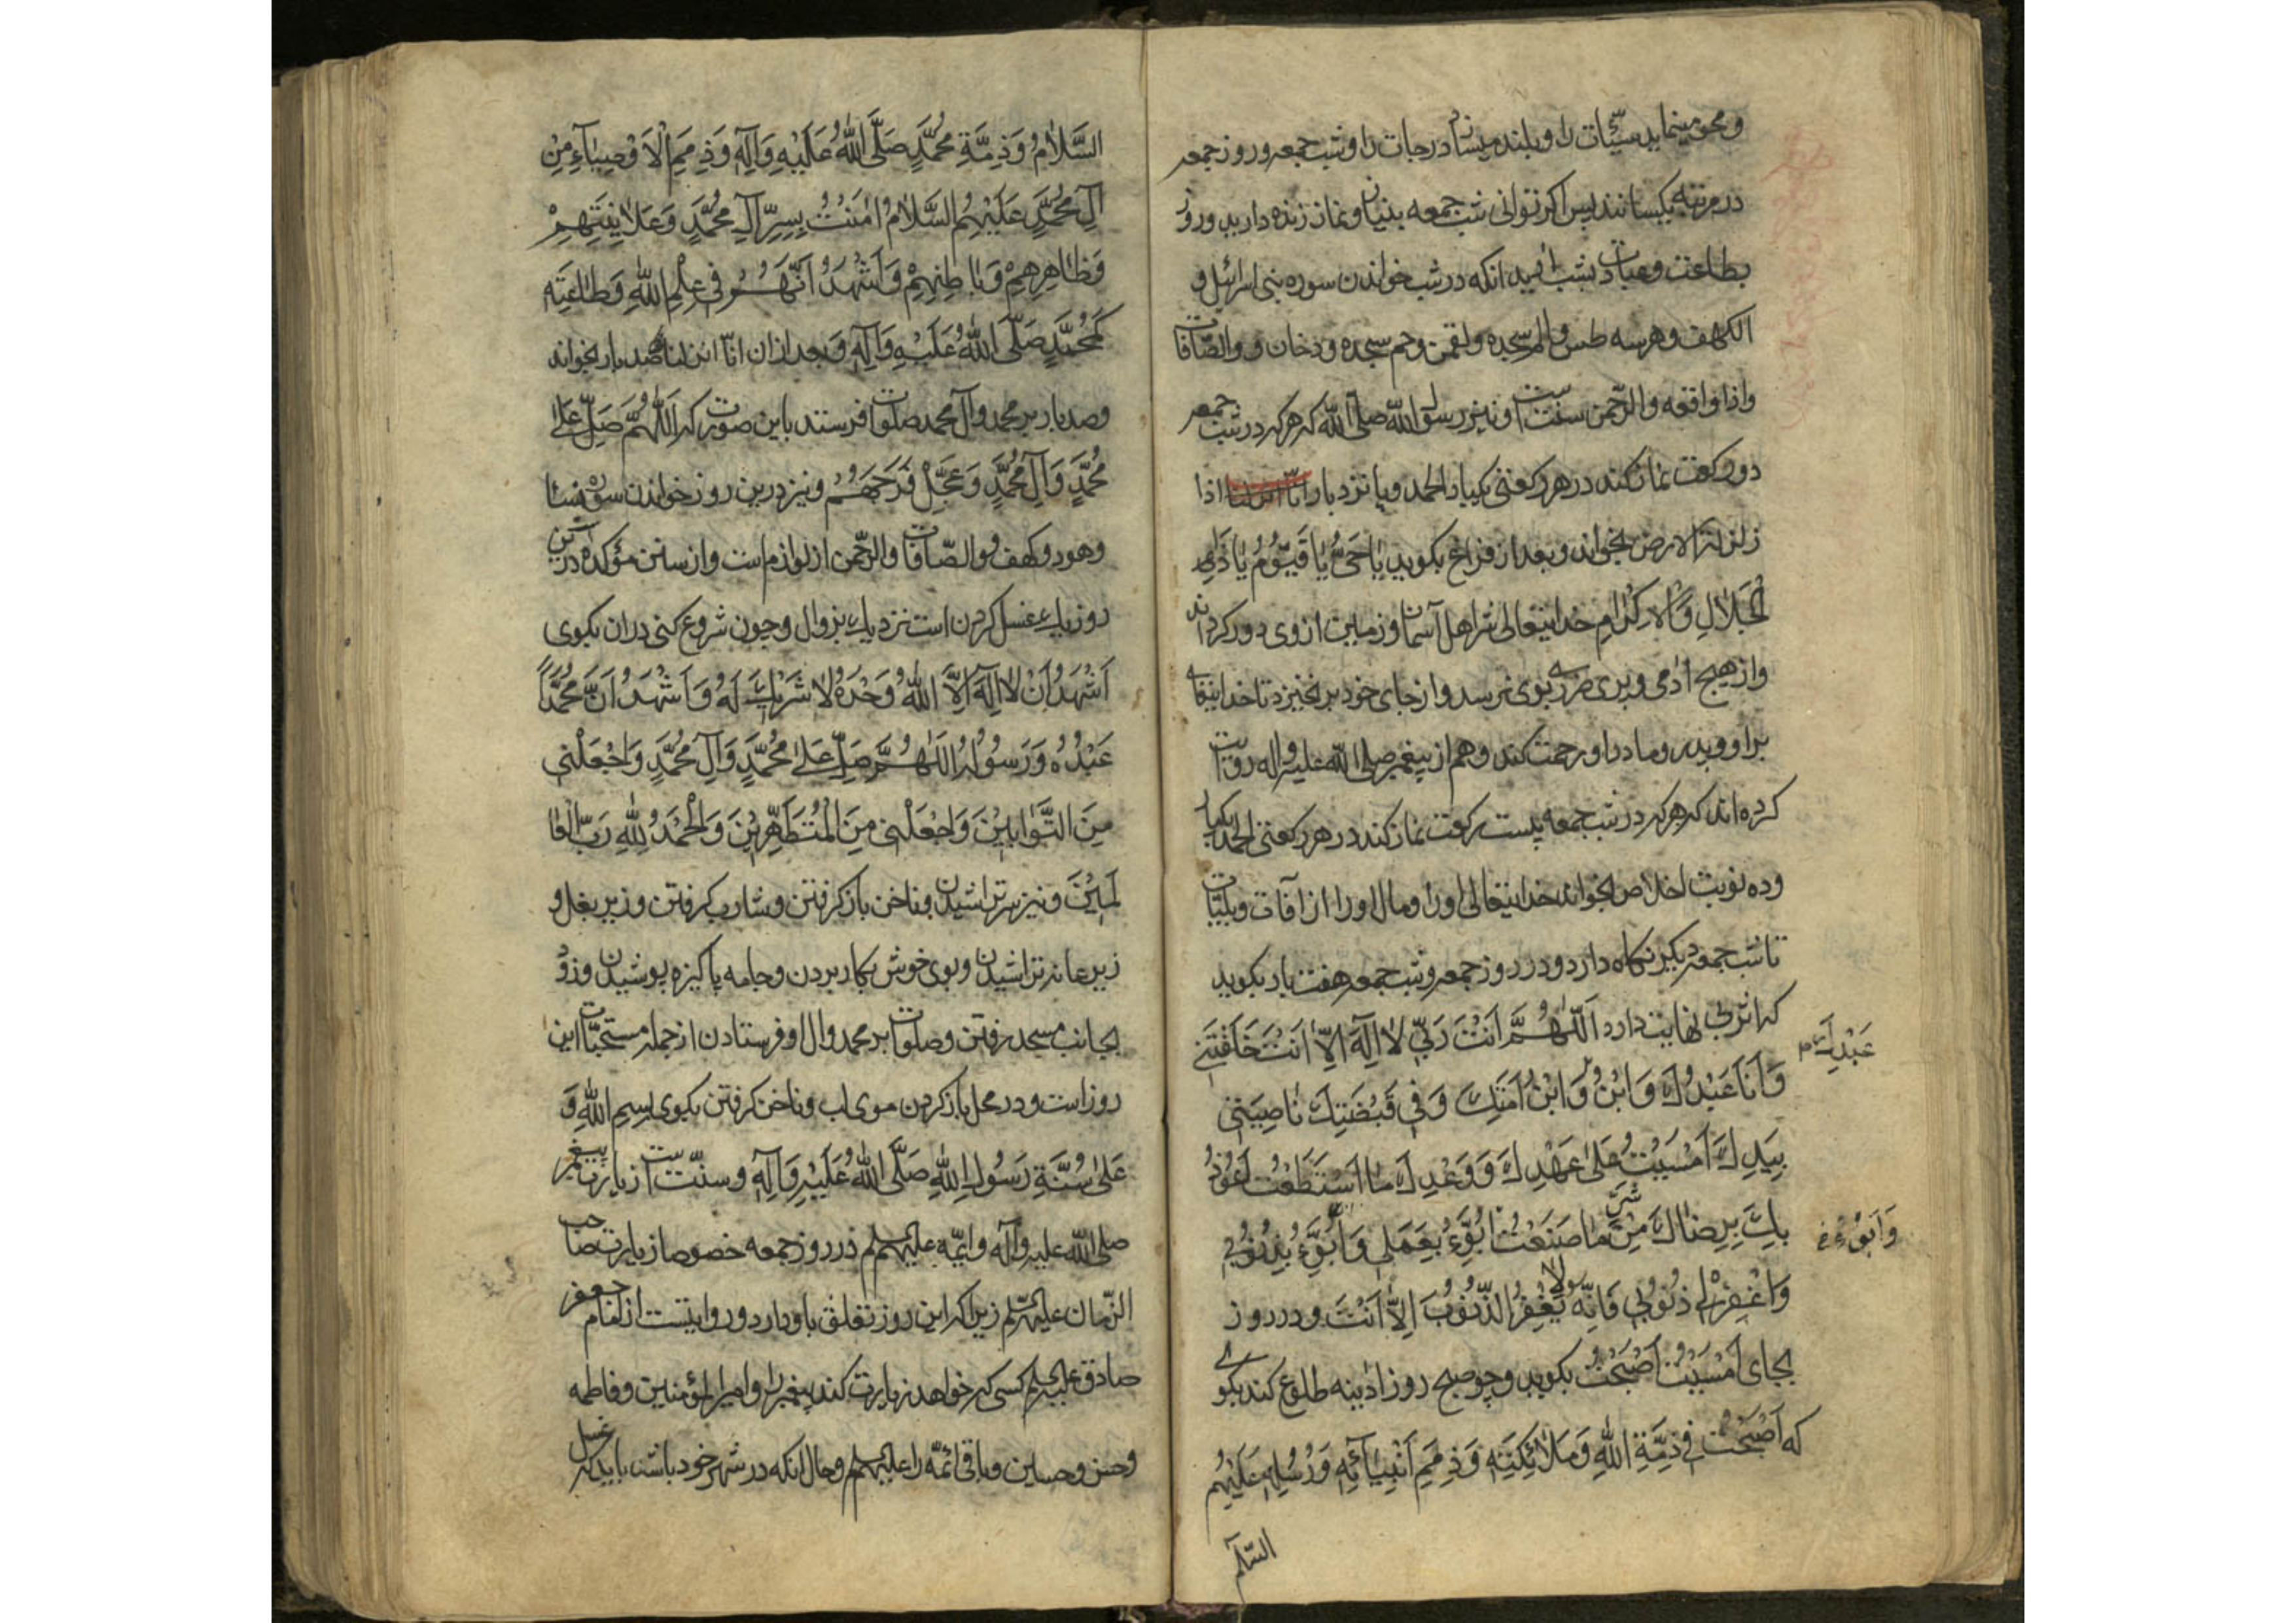 و محو مینماید سیّئات را و بلند میسازد درجات را و شب جمعه و روز جمعه
در مرتبه یکسانند پس اکر توانی شب جمعه بنیان و نماز زنده دارید و روز
بطاعت و عبادت بشب ارید انکه در شب خواندن سوره بنی اسرائیل و
الکهف و هر سه طس و الم سجده و لقمن و حم سجده و دخان و و الصّافات
و اذا واقعه و الرّحمن سنت است و نیز رسول اللّه صلّی اللّه که هر که در شب جمعه
دو رکعت نماز کند در هر رکعتی یکبار الحمد و پانزده بار انّا انزلنا اذا
زلزلة الارض بخواند و بعد از فراغ بکوید یٰا حَیُّ یٰا قَیُّوُمُ یٰا ذَا
الجَلٰالِ وَالاِکْرٰامِ خدایتعالی شر اهل آسمان و زمین از وی دور کرداند
و از هیچ ادمی و پری ضرری بوی نرسد و از جای خود برنخیزد تا خدایتعالی
بر او و پدر و مادر او رحمت کند و هم از پیغمبر صلی اللّه علیه و اله روایت
کرده اند که هر که در شب جمعه بیست رکعت نماز کند در هر رکعتی الحمد یکبار
و ده نوبت اخلاص بخواند خدایتعالی او را و مال او را از آفات و بلیّات
تا شب جمعه دیکر نکاه دارد و در روز جمعه و شب جمعه هفت بار بکوید
که اثر بی نهایت دارد اَللّٰهُمَّ اَنْتَ رَبّی لٰا اِلٓهَ اِلّٰا اَنْتَ خَلَقْتَنی
وَاَنَا عَبْدُكَ وَابْنُ وَابْنُ اَمَتِكَ وَفی قَبْضَتِكَ نٰاصِیَتی
عَبْدِكَ
بِیَدِكَ اَمْسَیْتُ عَلیٰ عَهْدِكَ وَوَعْدِكَ مَا اسْتَطَعْتُ اَعُوُذُ
بِكَ بِرِضٰاكَ مِنْ شَرِّ مٰا صَنَعْتُ اَبُوُءُ بِعَمَلی وَاَبُوُءُ بِذُنُوبی
وَاَبُوُءُ
وَاغْفِرْلی ذُنُوُبی فَاِنَّه لا یَغْفِرُ الذُّنُوُبَ اِلّٰا اَنْتَ و در روز
بجای اَمْسَیْتُ اَصْبَحْتُ بکوید و چو صبح روز ادینه طلوع کند بکوی
که اَصْبَحْتُ فی ذِمَّةِ اللّٰهِ وَمَلٰائِکَتِهِ وَذِمَمِ اَنْبِیٰائِهِ وَرُسُلِهِ عَلَیْهِم
السّلم
السَّلٰامُ وَذِمَّةِ مُحَمَّدٍ صَلَّی اللّٰهُ عَلَیْهِ وَآلِهِ وَذِمَمِ الْاَوْصِیٰاءِ مِنْ
آلِ مُحَمَّدٍ عَلَیْهِمُ السَّلٰامُ اٰمَنْتُ بِسِرِّ آلِ مُحَمَّدٍ وَعَلٰانِیَتِهِمْ
وَظٰاهِرِهِمْ وَبٰاطِنِهِمْ وَاَشْهَدُ اَنَّهُمْ فی عِلْمِ اللّٰهِ وَطٰاعَتِهِ
کَمُحَمَّدٍ صَلَّی اللّٰهُ عَلَیْهِ وَآلِهِ و بعد از ان انّا انزلناه صد بار بخواند
و صد بار بر محمد و آل محمد صلوات فرستد باین صورت که اَللّٰهُمَّ صَلِّ عَلیٰ
مُحَمَّدٍ وَآلِ مُحَمَّدٍ وَعَجِّلْ فَرَجَهُمْ و نیز درین روز خواندن سوره نسا
و هود و کهف و والصّافات و الرّحمن از لوازم است و از سنن مؤکده درین
روز یك غسل کردن است نزدیك بزوال و چون شروع کنی دران بکوی
اَشْهَدُ اَنْ لٰا اِلٓهَ اِلَّا اللّٰهُ وَحْدَهُ لٰا شَرْیكَ لَهُ وَاَشْهَدُ اَنَّ مُحَمَّدًا
عَبْدُهُ وَرَسُوُلُهُ اَللّٰهُمَّ صَلِّ عَلیٰ مُحَمَّدٍ وَآلِ مُحَمَّدٍ وَاجْعَلْنی
مِنَ التَّوّٰابیْنَ وَاجْعَلْنی مِنَ الْمُتَطَهِّرِیْنَ وَالْحَمْدُ لِلّٰهِ رَبِّ الْعٰا
لَمیْنَ و نیز سر تراشیدن و ناخن باز کرفتن و شارب کرفتن و زیر بغل و
زیر عانه تراشیدن و بوی خوش بکار بردن و جامه پاکیزه پوشیدن و زود
بجانب مسجد رفتن و صلوات بر محمد و ال او فرستادن از جمله مستحبّات این
روز است و در محل باز کردن موی لب و ناخن کرفتن بکوی بِسْمِ اللّٰهِ وَ
عَلیٰ سُنَّةِ رَسُولِ اللّٰهِ صَلَّی اللّٰهُ عَلَیْهِ وَآلِهِ و سنّت است زیارت پیغمبر
صلی اللّه علیه و آله و ائمّه علیهم السلم در روز جمعه خصوصا زیارت صاحب
الزّمان علیه السّلم زیرا که این روز تعلق باو دارد و روایتست از امام جعفر
صادق علیه السلم کسی که خواهد زیارت کند پیغمبر را و امیر المؤمنین و فاطمه
و حسن و حسین و باقی ائمّه را علیهم السلم و حال انکه در شهر خود باشد باید که غسل